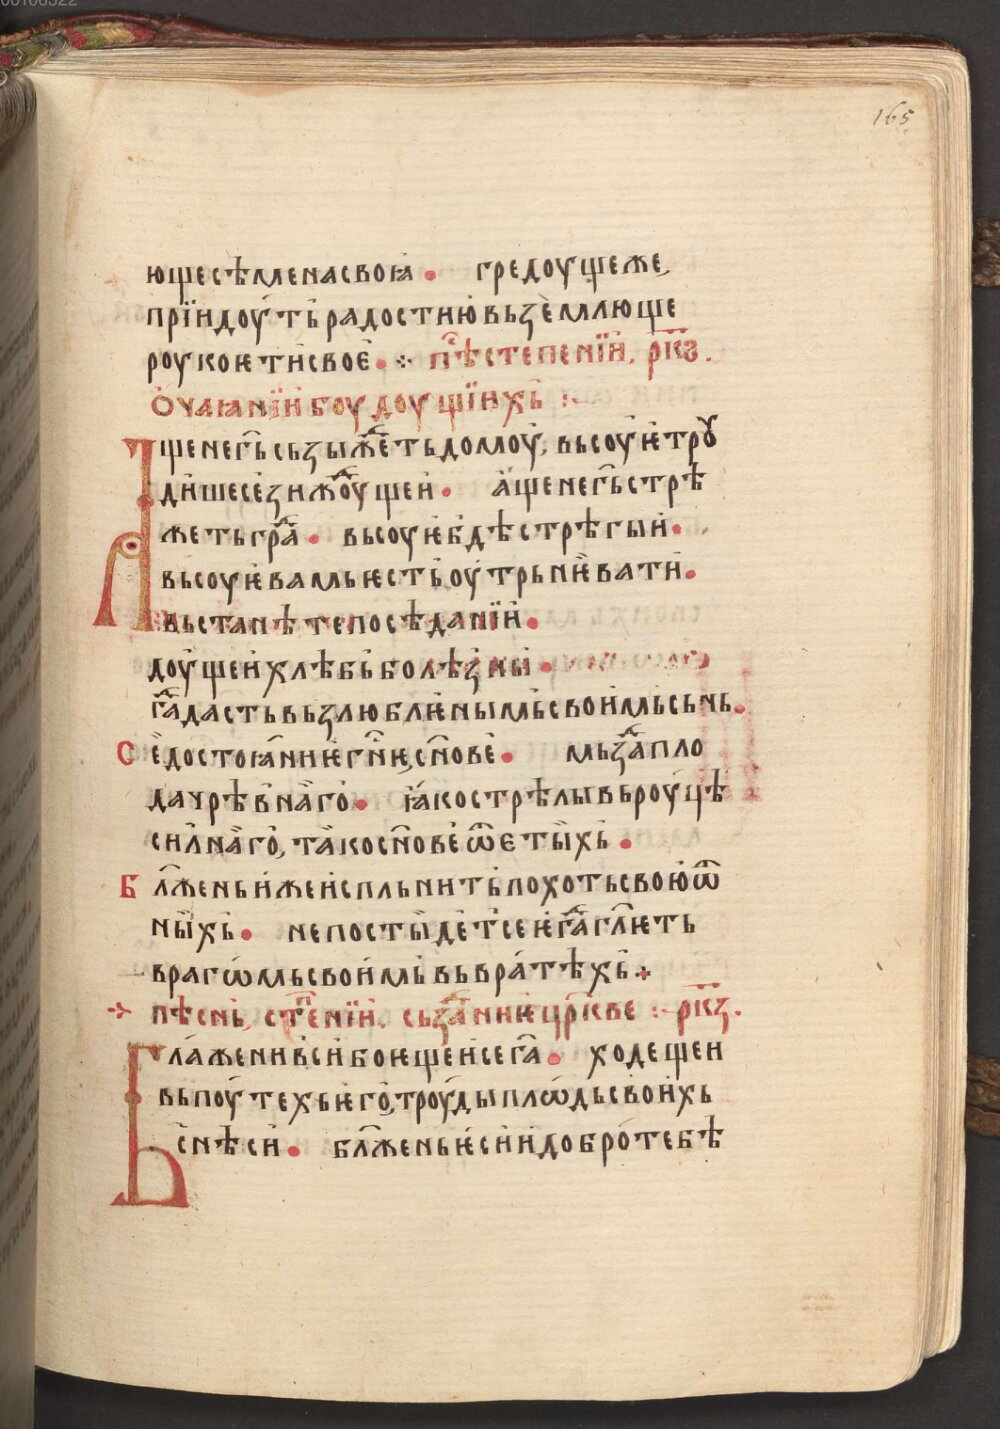 00106322
165
юще сѣмена своꙗ • гредоуще же,
прїидоуть радостию вьземлюще
роукоѥти своѥ • пⷭ҇ѣ степенїи, рк҃ꙅ.
Ѻ чаꙗнїи боудоущїихь :~
Аще не гь҃ сьзыжⷣеть домоу, вьсоуѥ троу
дише се зижⷣоущеи • аще не гь҃ стрѣ
жеть граⷣ • вьсоуѥ бдѣ стрѣгыи •
вьсоуѥ вамь ѥсть оутрьнѥвати •
вьстанѣте по сѣданїи •
доущеи хлѣбь болѣзны •
ѥгⷣа дасть вьзлюблѥнымь своимь сьнь •
Се достоꙗниѥ гн҃ѥ, сн҃ове • мьзⷣа пло
да чрѣвнаго • ꙗко стрѣлы вь роуцѣ
силнаго, тако сн҃ове ѿетыхь •
Бл҃жень иже испльнить похоть свою ѿ
ныхь • не постыдет се ѥгⷣа гл҃ѥть
врагѡмь своимь вь вратѣхь
пѣснь, стⷫ҇енїи. сьзⷣаниѥ цр҃кве :~ рк҃з.
Блажени вси боѥщеи се га҃ • ходещеи
вь поутехь ѥго, троуды плѡдь своихь
снѣси • бл҃жень ѥси и добро тебѣ